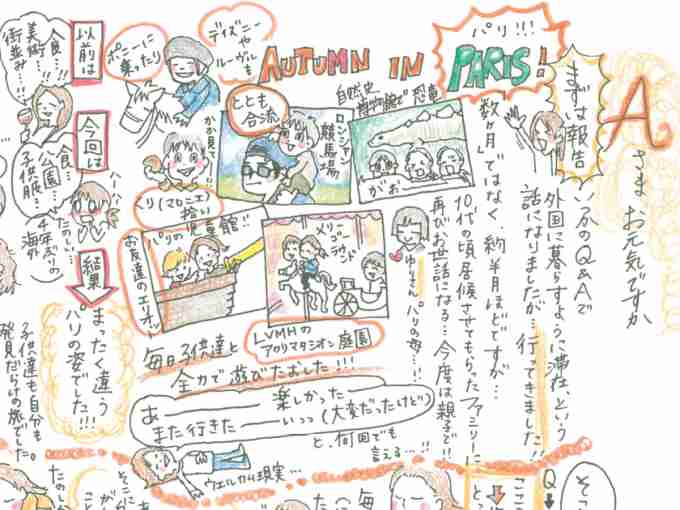 Aさま お元気ですか
まずは報告
いつかのQ&Aで
外国に暮らすように滞在という
話になりましたが…行ってきました!!
パリ!!!
AUTUMN IN PARIS!
数ヶ月ではなく 約半月ほどですが…
10代の頃居候させてもらったファミリーに
再びお世話になる…今度は親子で!!
ゆりさん パリの母…!!
自然史博物館で恐竜
がお
ロンシャン競馬場
ととも合流
ディズニーや
ルーヴルも
ポニーに
乗ったり
くり(マロニエ)拾い
パリの
お友達のエオン
メリーゴーランド
LVMHの
アクリマタシオン庭園
毎日子供達と
全力で遊びたおした!!!
あー楽しかったー
また行きたーいっっ(大変だったけど)
と、何回でも
言える…!!
ウェルカム現実…
以前は
食…!
美術…!
街並み…!!
今回は
食…!
公園…!
子供服…!
たのしい…
4年ぶりの
海外
結果
まったく違う
パリの姿でした!!!
子供達も自分も。
発見だらけの旅でした。